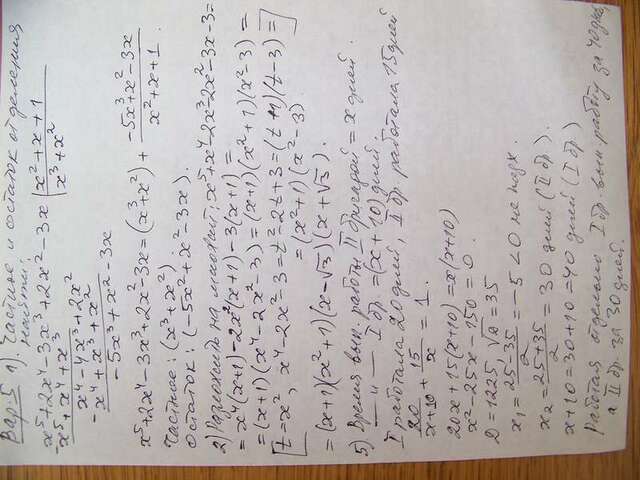 Вар. 5 1). Частное и остаток от деления
найти:
x⁵+2x⁴-3x³+2x²-3x | x²+x+1
-x⁵+x⁴+x³ | x³+x²
x⁴-4x³+2x²
-x⁴+x³+x²
-5x³+x²-3x
x⁵+2x⁴-3x³+2x²-3x=(x³+x²)+ (-5x³+x²-3x)/(x²+x+1).
Частное: (x³+x²)
Остаток: (-5x³+x²-3x).
2) Разложить на множит: x⁵+x⁴-2x³-2x²-3x-3=
=x⁴(x+1)-2x²(x+1)-3(x+1)=
=(x+1)(x⁴-2x²-3)=(x+1)(x²+1)(x²-3)=
[t=x², x⁴-2x²-3=t²-2t+3=(t+1)(t-3)=]
=(x²+1)(x²-3).
=(x+1)(x²+1)(x-√3)(x+√3).
5) Время вып. работы II бригадой = x дней.
— " — I бр. = (x+10) дней.
I работала 20 дней, II бр. работала 15 дней
20/(x+10) + 15/x = 1.
20x+15(x+10)=x(x+10)
x²-25x-150=0.
D=1225, √D=35
x₁=(25-35)/2=-5<0 не подх.
x₂=(25+35)/2=30 дней (II бр.).
x+10=30+10=40 дней (I бр.)
Работая отдельно I бр. вып. работу за 40 дней,
а II бр. за 30 дней.